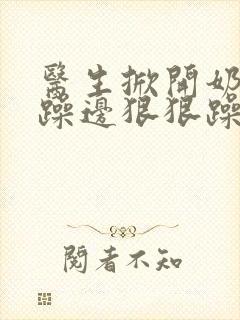 醫生掀開奶
躁邊狠狠躁
閱者不知